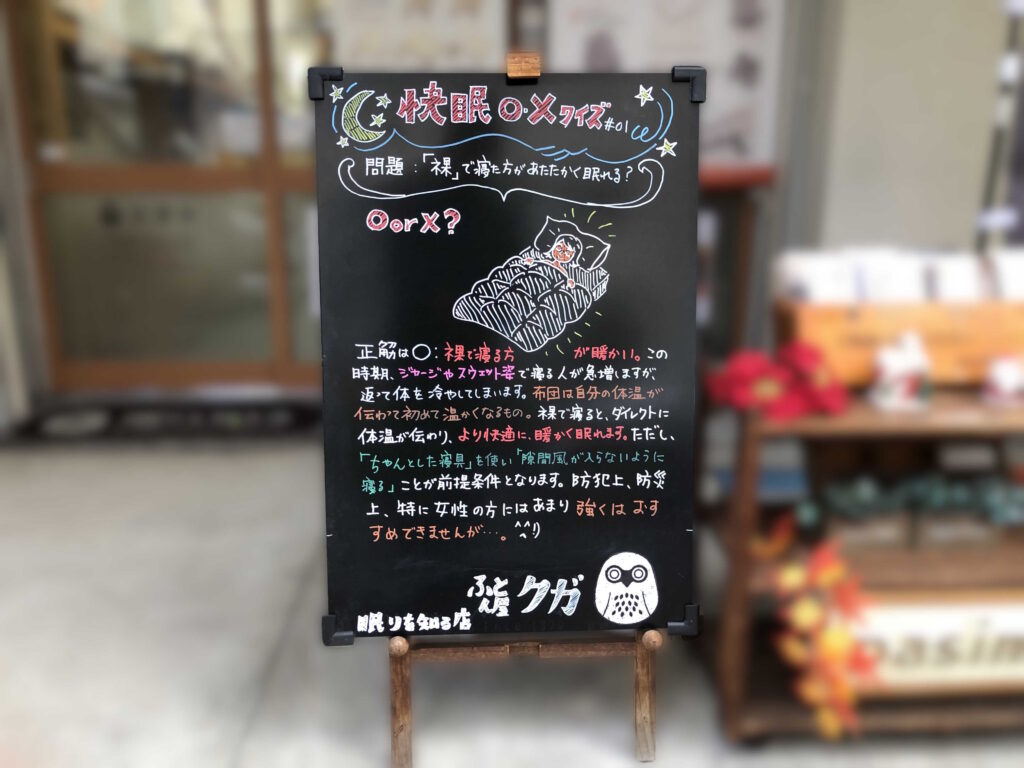 快眠○・×クイズ#01
問題：「裸」で寝た方があたたかく眠れる？
○or×？
正解は○：裸で寝る方 が暖かい。この
時期、ジャージやスウェット姿で寝る人が急増しますが
返って体を冷やしてしまいます。布団は自分の体温が
伝わって初めて温かくなるもの。裸で寝ると、ダイレクトに
体温が伝わり、より快適に、暖かく眠れます。ただし、
「ちゃんとした寝具」を使い「隙間風が入らないように
寝る」ことが前提条件となります。防犯上、防災
上、特に女性の方にはあまり強くはおす
すめできませんが…。^^;)
ふとん屋 クガ
眠りを知る店
asim